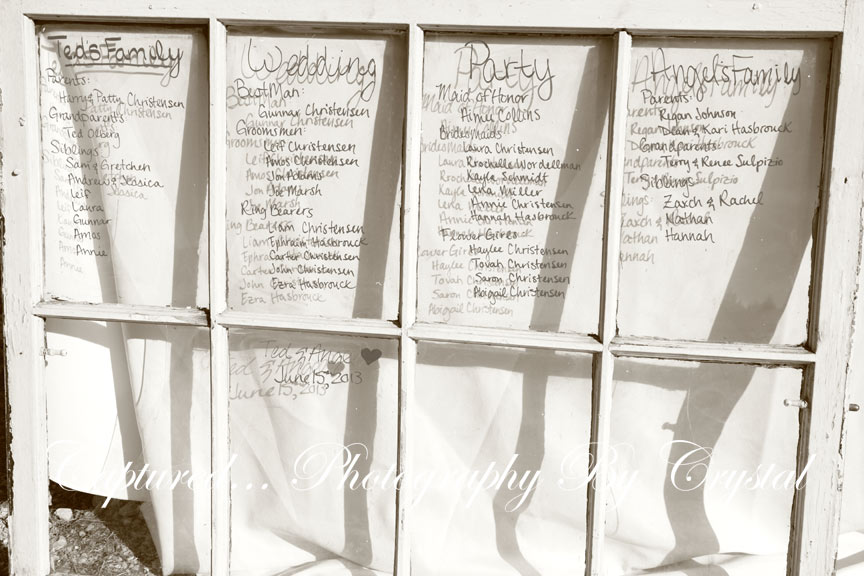 Ted's Family
Parents:
Harry & Patty Christensen
Grandparents
Ted Olberg
Siblings
Sam & Gretchen
Andrew & Jessica
Leif
Laura
Gunnar
Amos
Annie
Wedding
Best Man:
Gunnar Christensen
Groomsmen:
Leif Christensen
Amos Christensen
Jon Adams
Joe Marsh
Ring Bearers
Liam Christensen
Ephraim Hasbrouck
Carter Christensen
John Christensen
Ezra Hasbrouck
Party
Maid of Honor
Aimee Collins
Bridesmaids
Laura Christensen
Rrochelle Wordellman
Kayla Schmidt
Lena Miller
Annie Christensen
Hannah Hasbrouck
Flower Girls
Haylee Christensen
Tovah Christensen
Saron Christensen
Abigail Christensen
Angel's Family
Parents:
Regan Johnson
Dean & Kari Hasbrouck
Grandparents
Terry & Renee Sulpizio
Siblings
Zaxch & Rachel
Nathan
Hannah
Ted & Angel ♥
June 15, 2013
Captured... Photography By Crystal